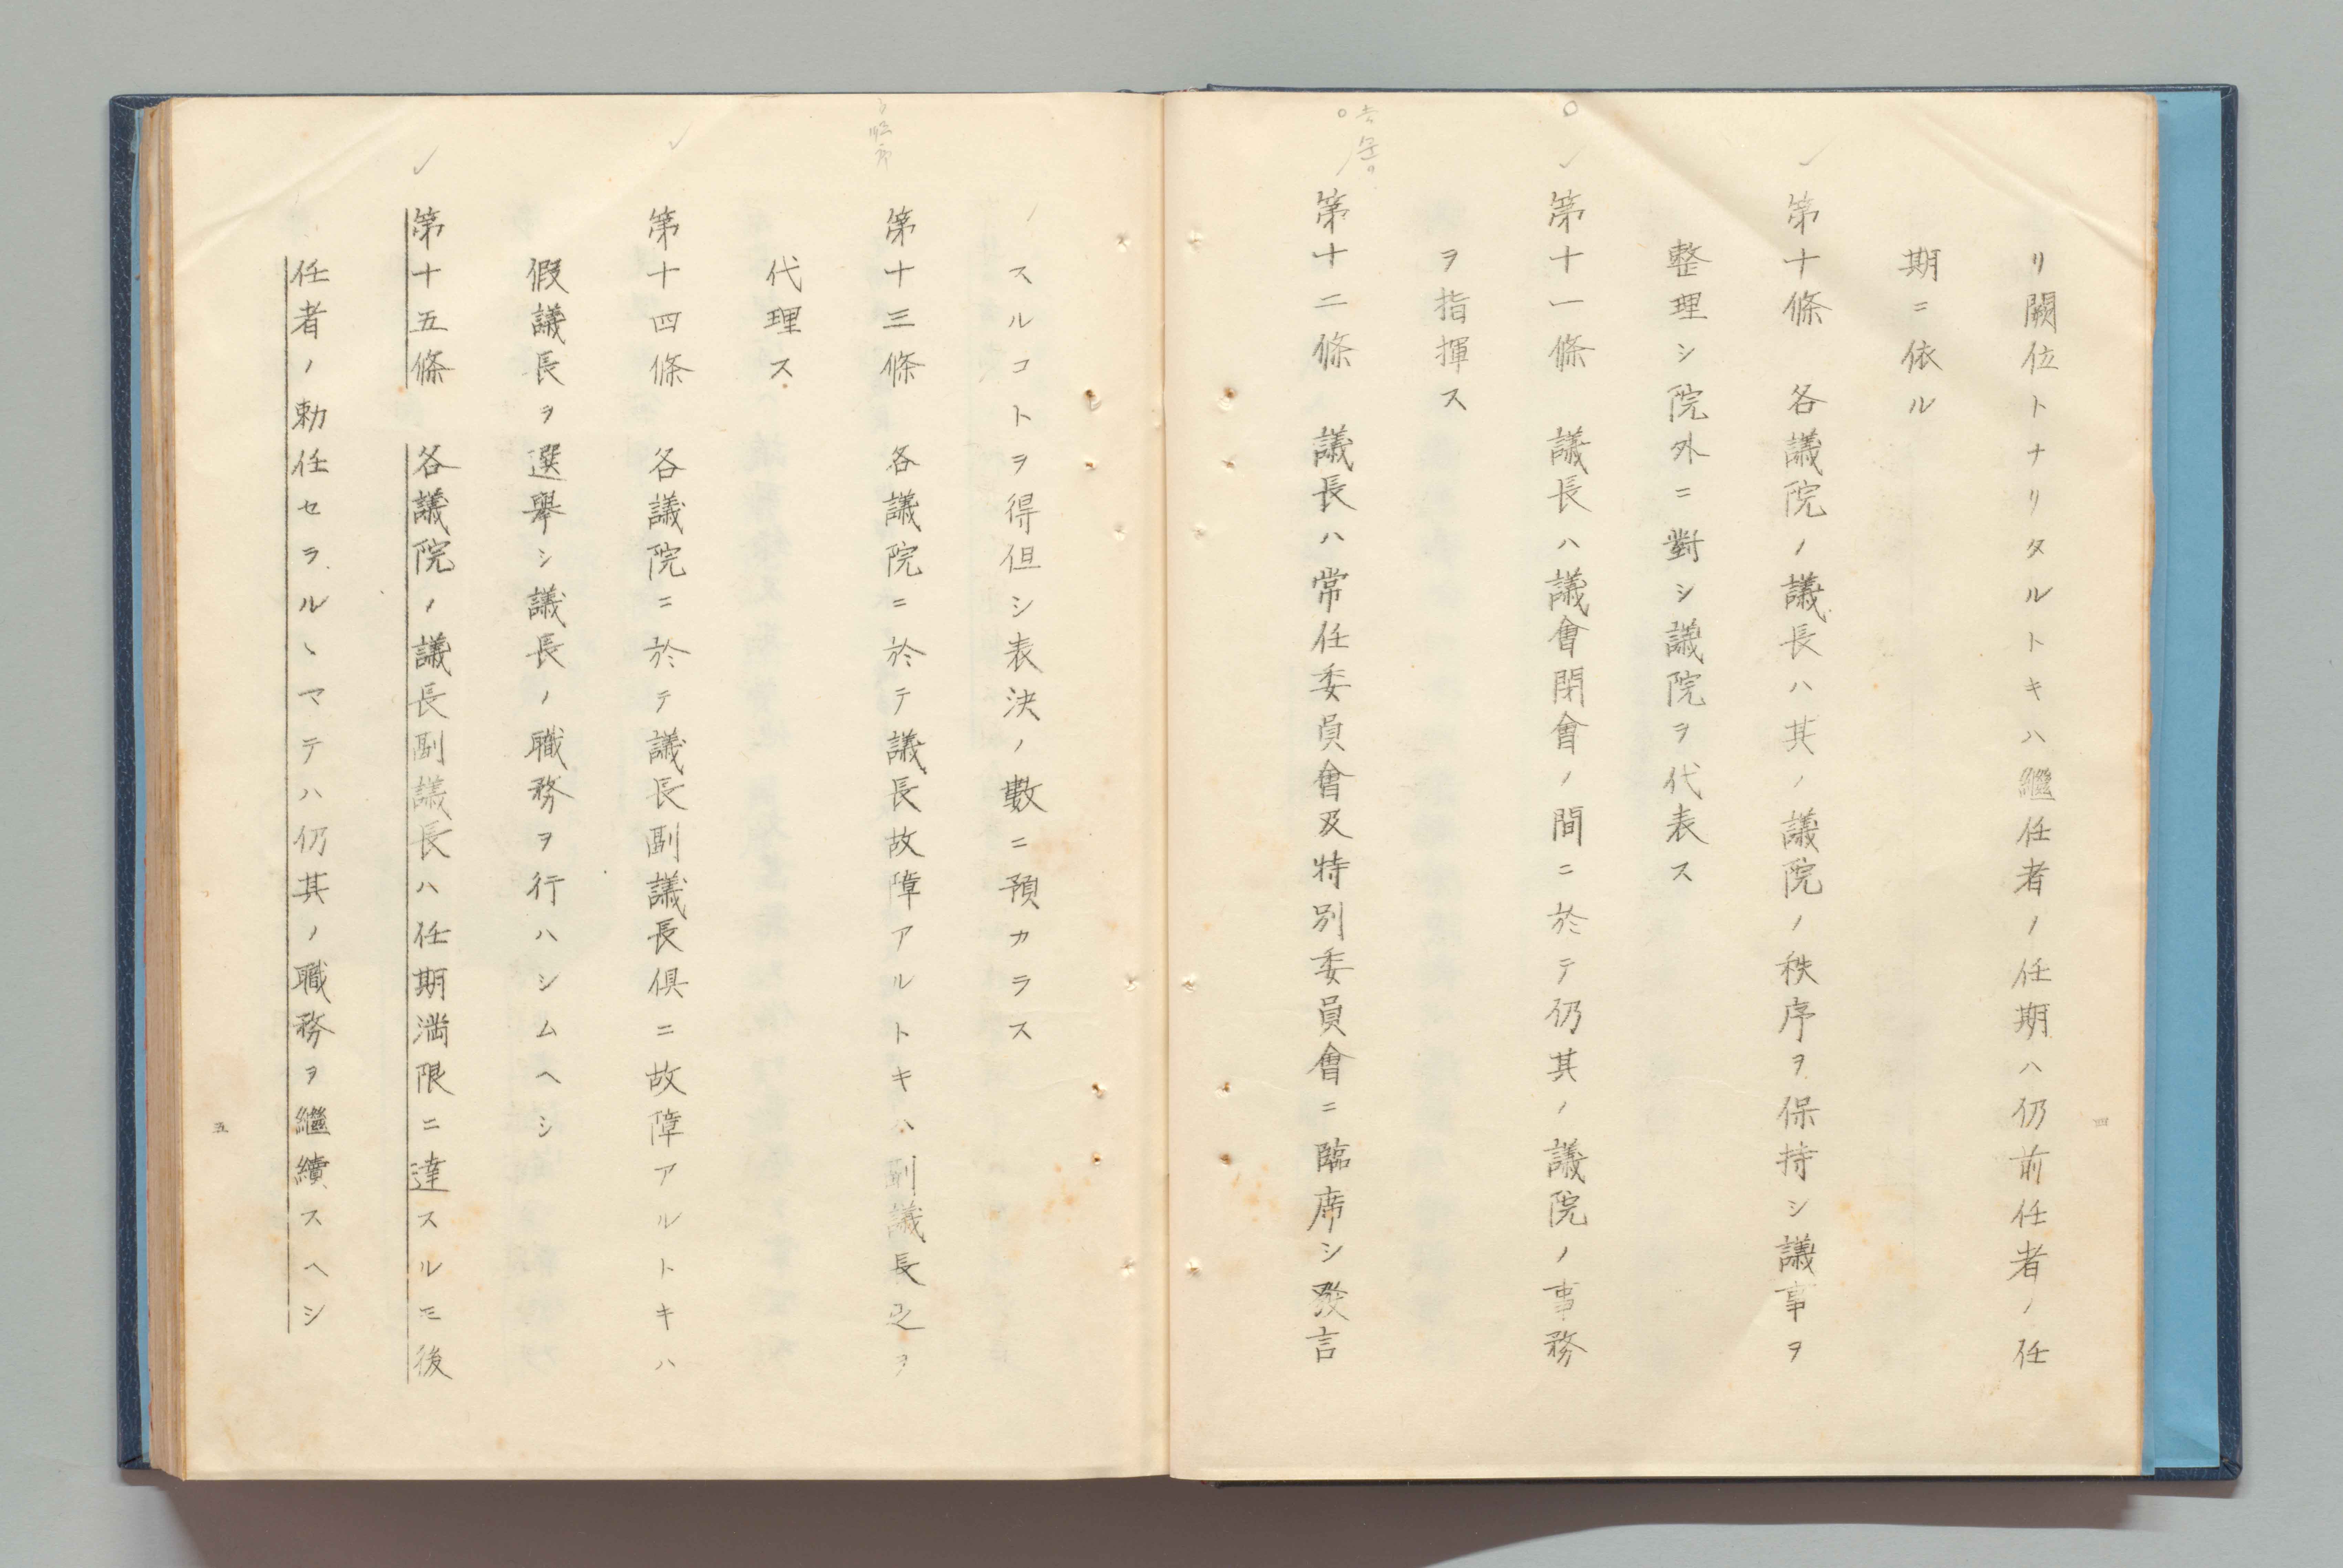 リ闕位トナリタルトキハ繼任者ノ任期ハ仍前任者ノ任
期ニ依ル
第十條　各議院ノ議長ハ其ノ議院ノ秩序ヲ保持シ議事ヲ
整理シ院外ニ對シ議院ヲ代表ス
第十一條　議長ハ議會閉會ノ間ニ於テ仍其ノ議院ノ事務
ヲ指揮ス
第十二條　議長ハ常任委員會及特別委員會ニ臨席シ發言
四
スルコトヲ得但シ表決ノ數ニ預カラス
第十三條　各議院ニ於テ議長故障アルトキハ副議長之ヲ
代理ス
第十四條　各議院ニ於テ議長副議長俱ニ故障アルトキハ
假議長ヲ選擧シ議長ノ職務ヲ行ハシムヘシ
第十五條　各議院ノ議長副議長ハ任期滿限ニ達スルモ後
任者ノ勅任セラルヽマテハ仍其ノ職務ヲ繼續スヘシ
五